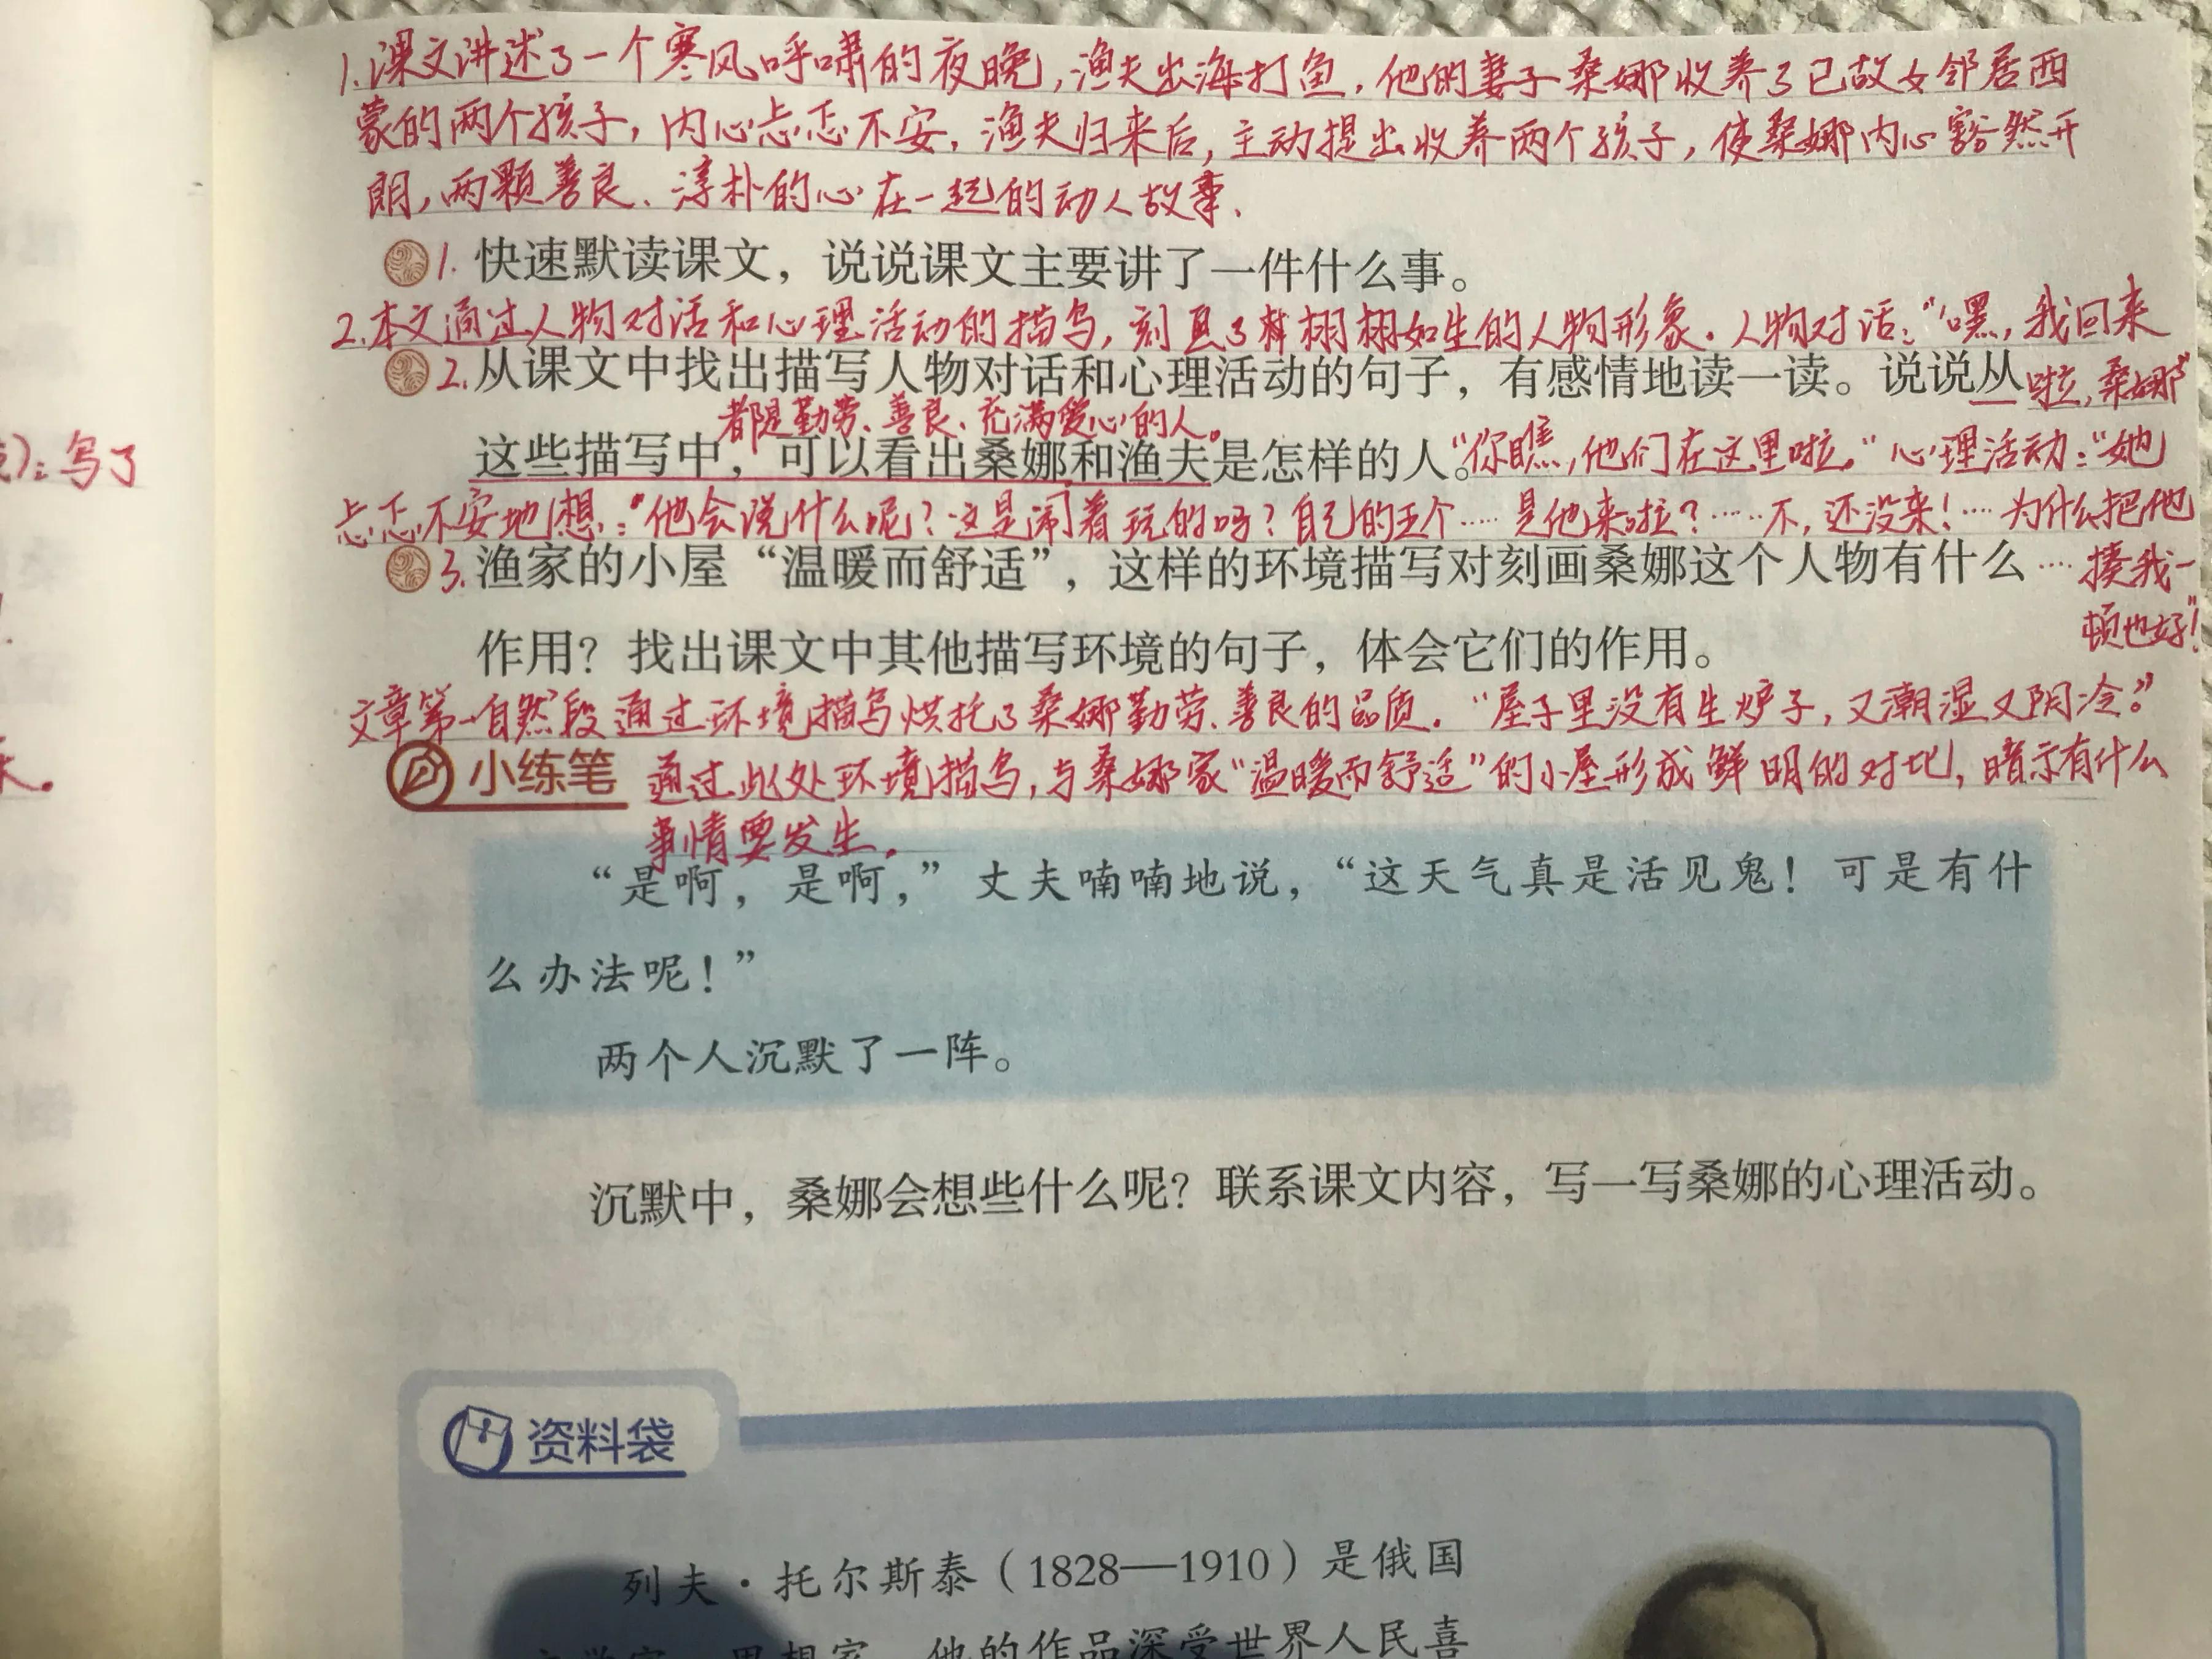 1.课文讲述了一个寒风呼啸的夜晚,渔夫出海打鱼,他的妻子桑娜收养了已故女邻居西
蒙的两个孩子,内心忐忑不安,渔夫归来后,主动提出收养两个孩子,使桑娜内心豁然开
朗,两颗善良、淳朴的心在一起的动人故事.
1. 快速默读课文，说说课文主要讲了一件什么事。
2.本文通过人物对话和心理活动的描写,刻画了栩栩如生的人物形象.人物对话:“嘿,我回来
2.从课文中找出描写人物对话和心理活动的句子，有感情地读一读。说说从
啦,桑娜”
都是勤劳、善良、充满爱心的人。
这些描写中，可以看出桑娜和渔夫是怎样的人。
“你瞧,他们在这里啦。”心理活动:“她
忐忑不安地想:“他会说什么呢?这是闹着玩的吗?自己的五个……是他来啦?……不,还没来!…为什么把他
3.渔家的小屋“温暖而舒适”，这样的环境描写对刻画桑娜这个人物有什么
…揍我一
顿也好!”
作用？找出课文中其他描写环境的句子，体会它们的作用。
文章第一自然段通过环境描写烘托了桑娜勤劳、善良的品质.“屋子里没有生炉子,又潮湿又阴冷。”
小练笔
通过此处环境描写,与桑娜家“温暖而舒适”的小屋形成鲜明的对比,暗示有什么
事情要发生.
“是啊，是啊，”丈夫喃喃地说，“这天气真是活见鬼！可是有什
么办法呢！”
两个人沉默了一阵。
沉默中，桑娜会想些什么呢？联系课文内容，写一写桑娜的心理活动。
资料袋
列夫·托尔斯泰（1828—1910）是俄国
他的作品深受世界人民喜
):写了